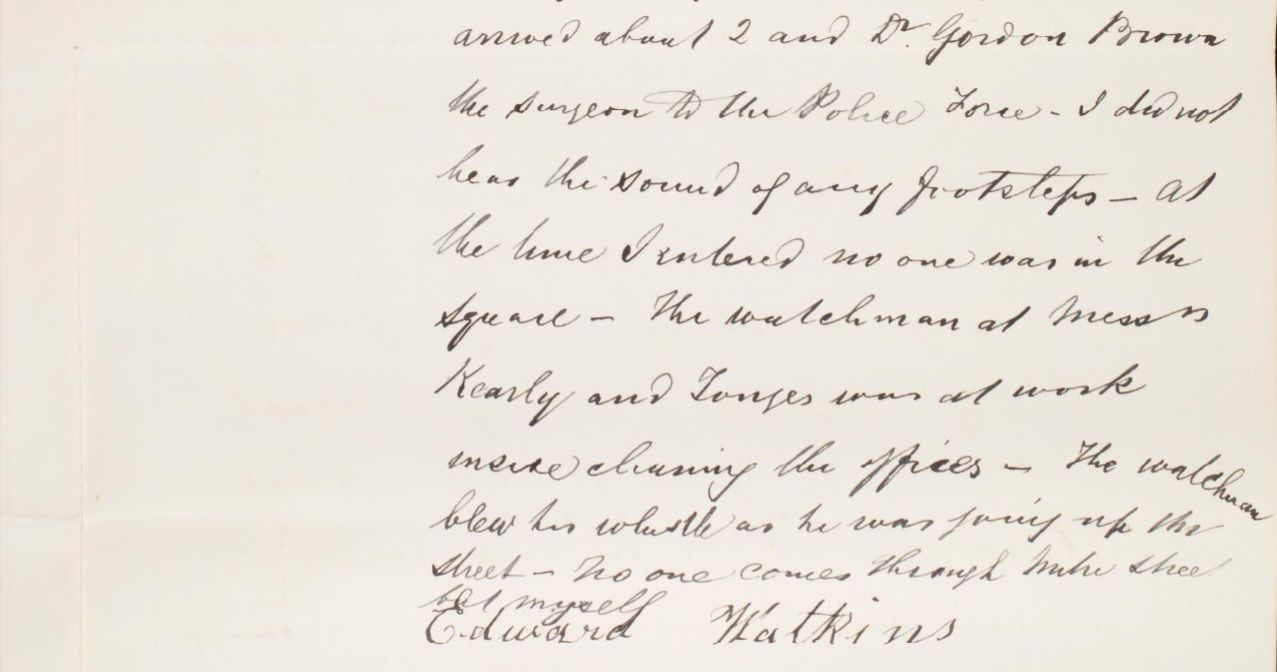 arrived about 2 and Dr. Gordon Brown
the surgeon to the Police Force - I did not
hear the sound of any footsteps - At
the time I entered no one was in the
square - The watchman at Messrs
Kearly and Tonges was at work
inside cleaning the offices - The watchman
blew his whistle as he was going up the
street - No one comes through Mitre Street
but myself
Edward Watkins